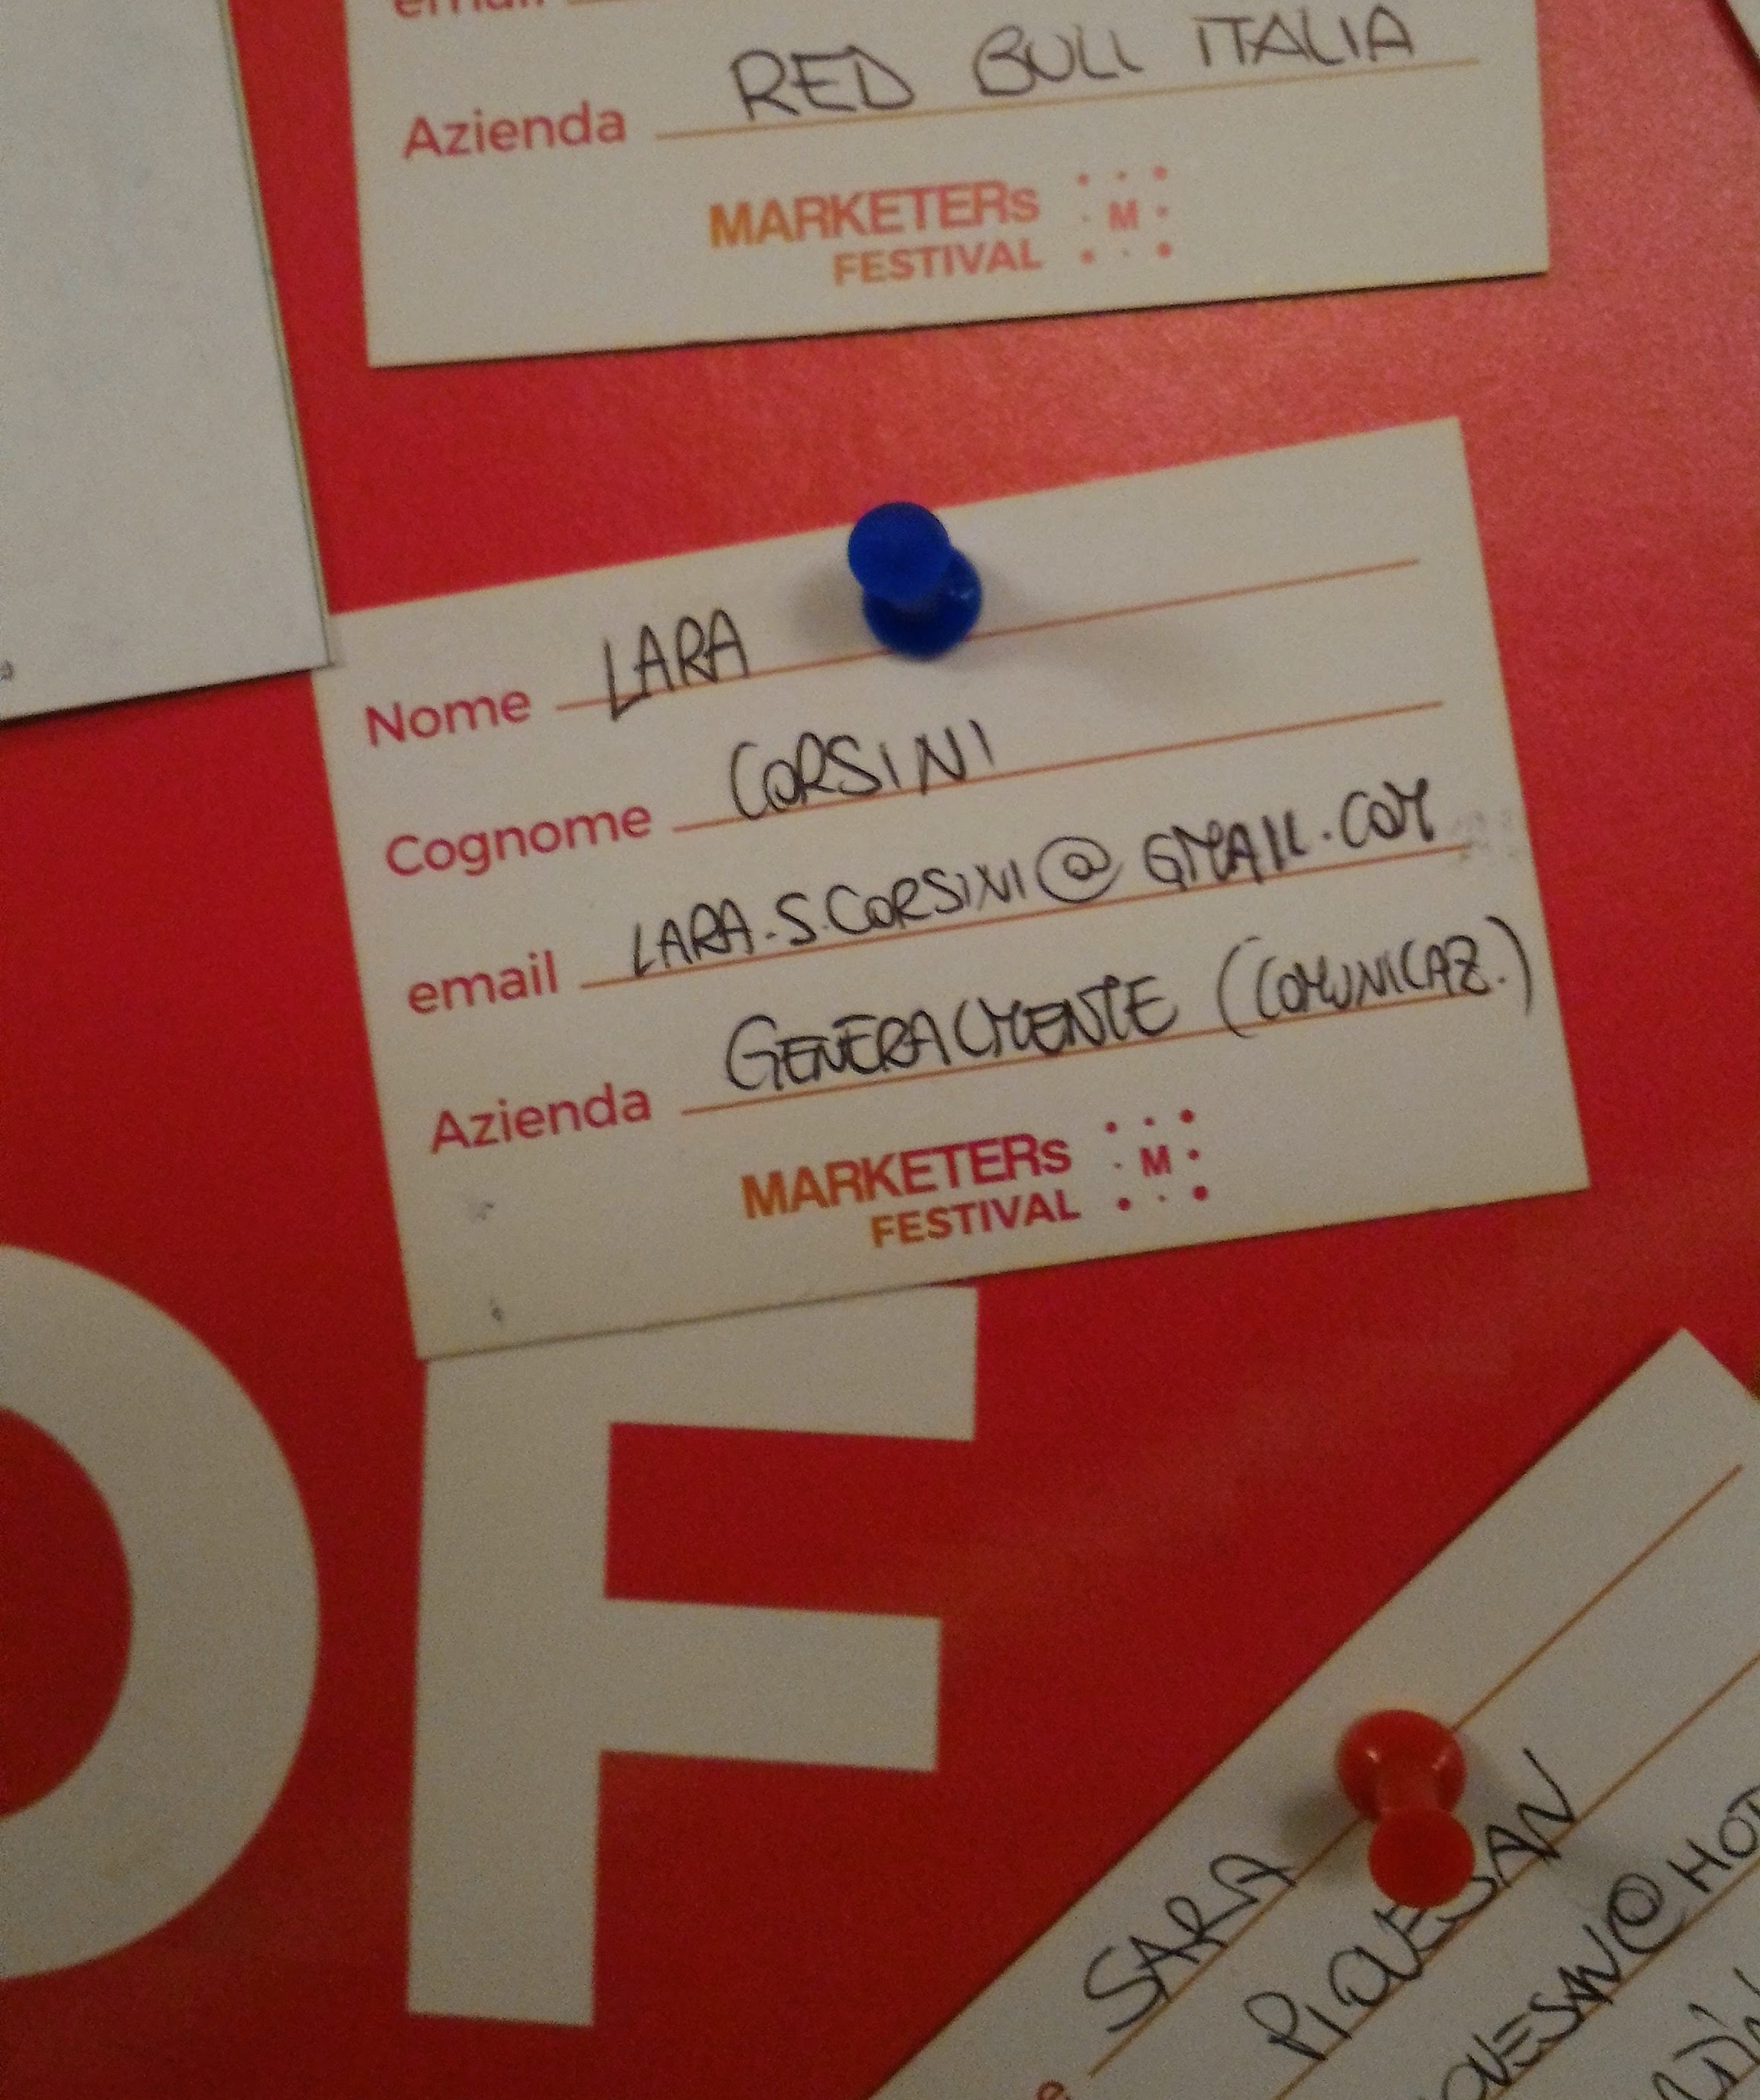 email
Azienda RED BULL ITALIA
MARKETERs M
FESTIVAL
Nome LARA
Cognome CORSINI
email LARA.S.CORSINI@GMAIL.COM
Azienda GENERALMENTE (COMUNICAZ.)
MARKETERs M
FESTIVAL
OF
SARA
PIOVESAN
OVESAN@HOT